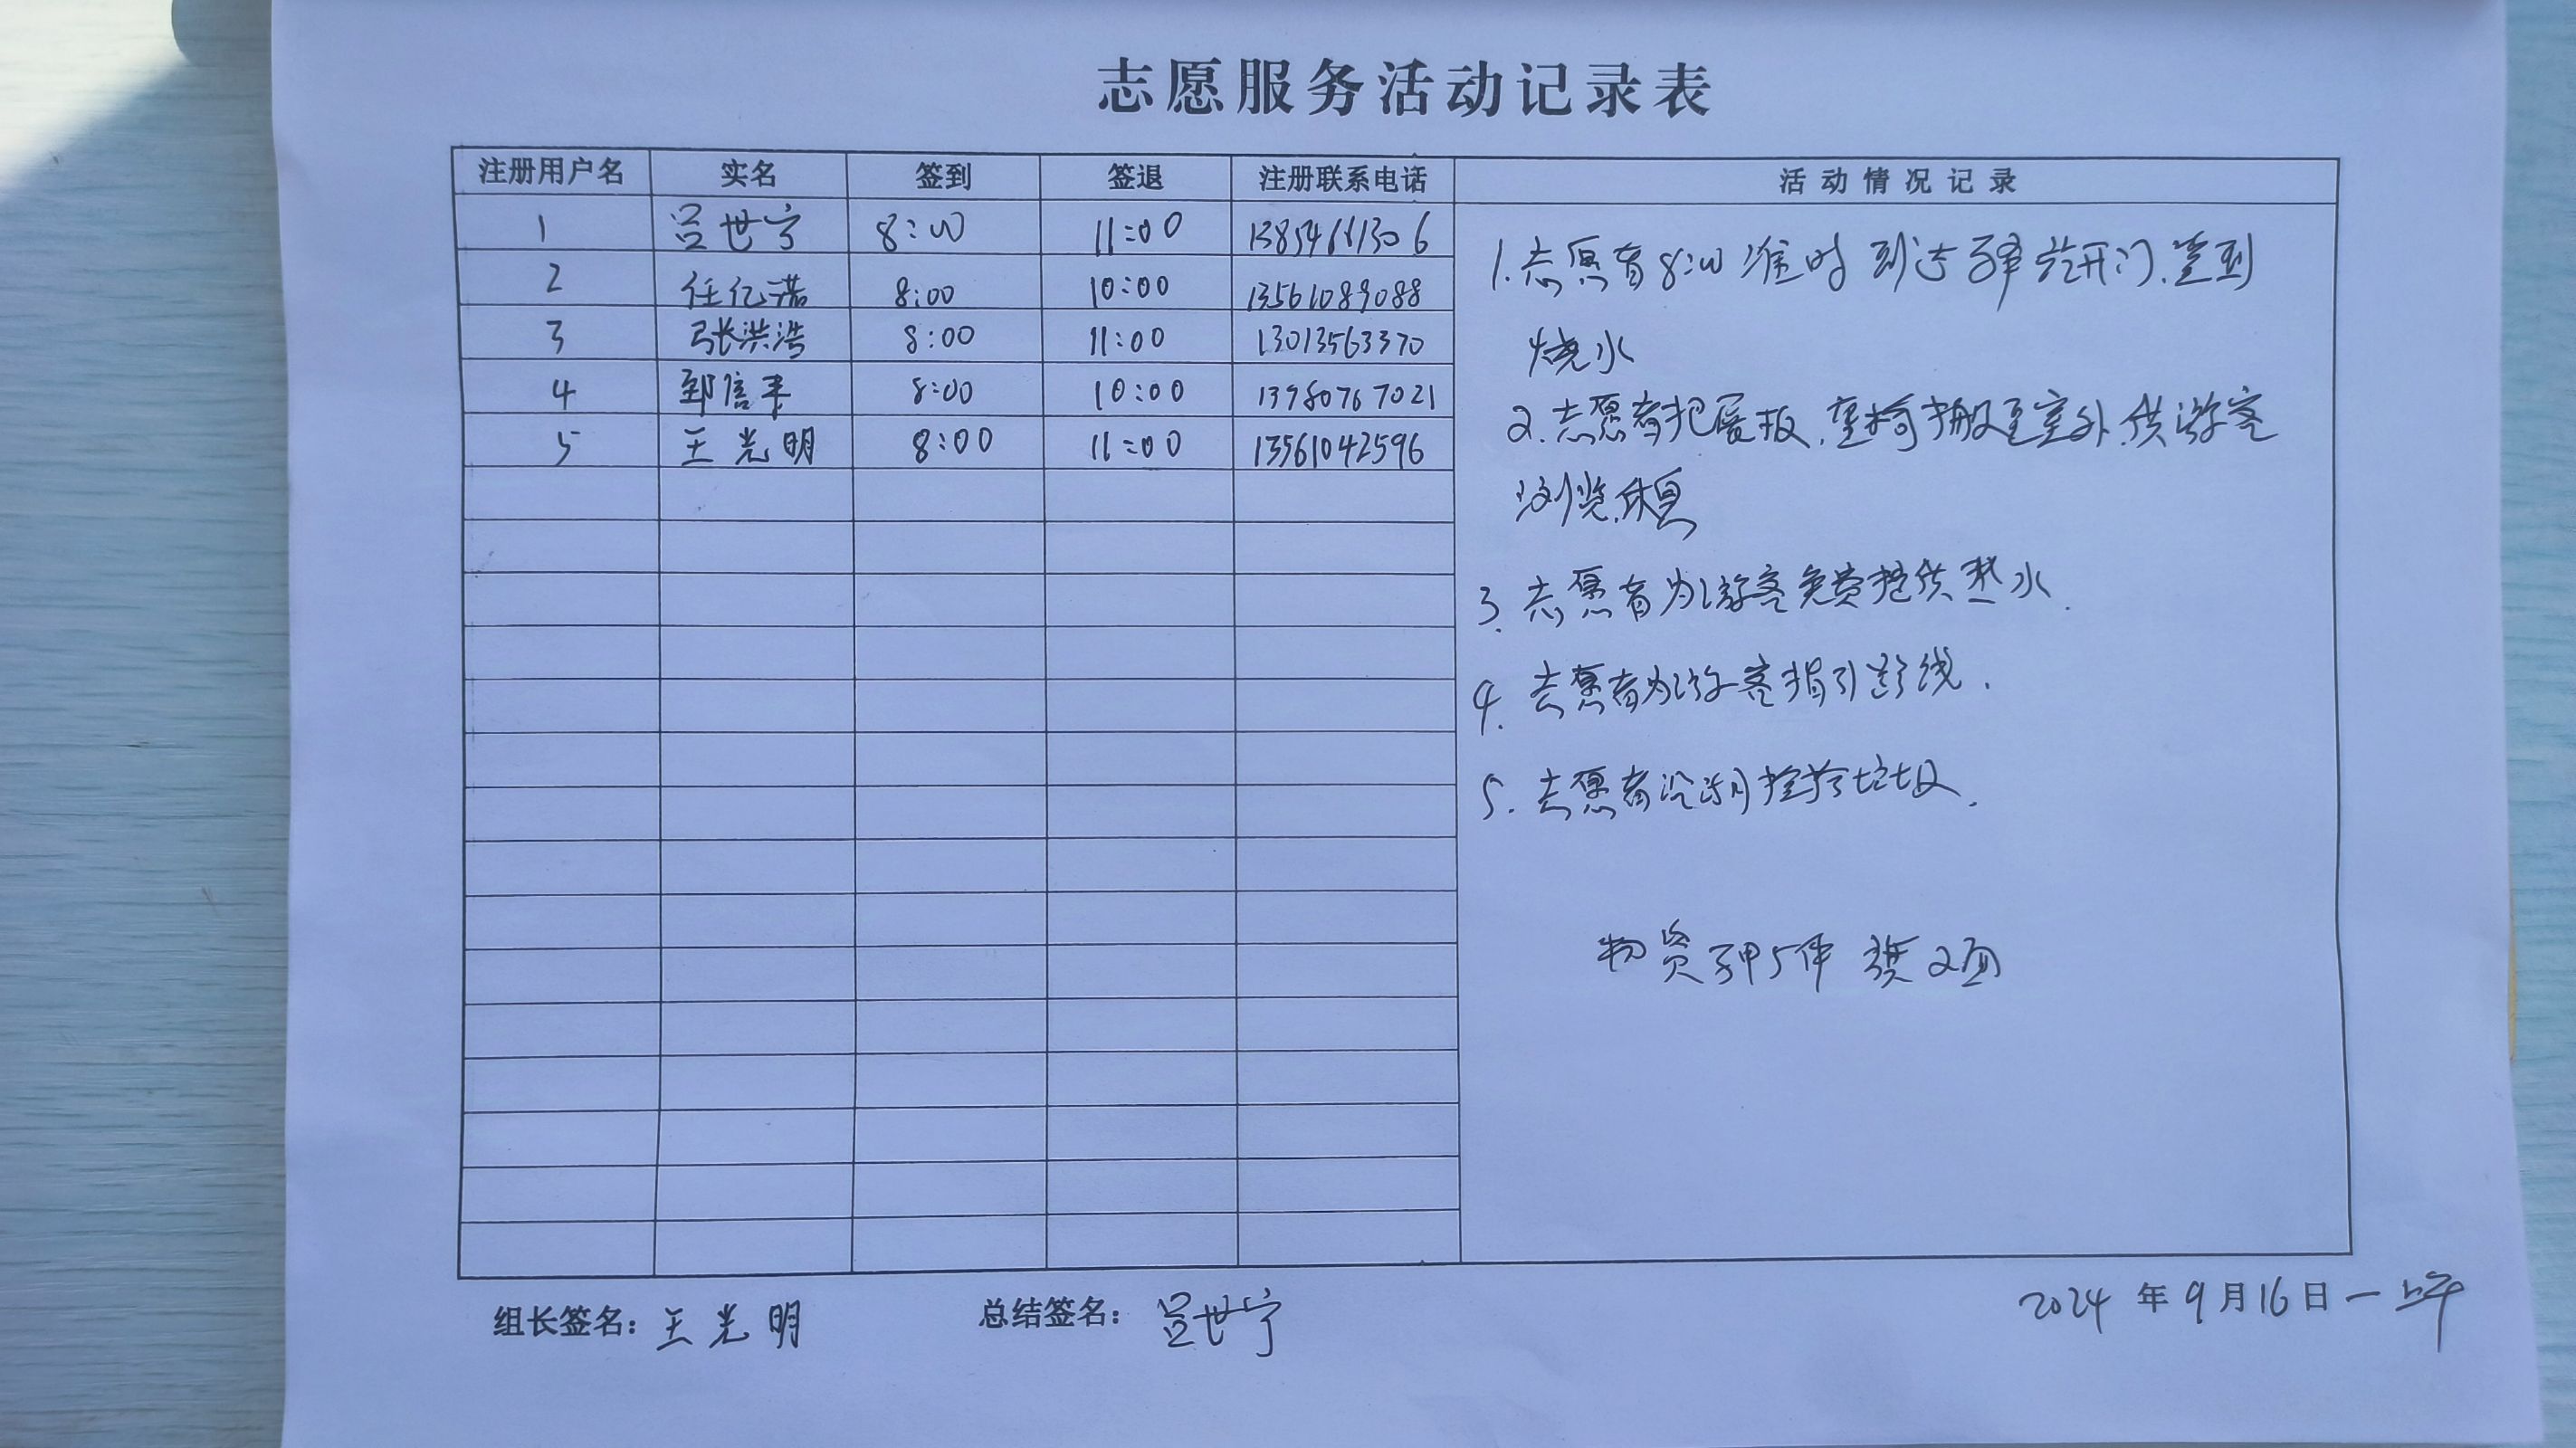 志愿服务活动记录表
注册用户名 实名 签到 签退 注册联系电话 活动情况记录
1 吕世宁 8:00 11:00
2 任亿诺 8:00 10:00 13561089088
3 张洪浩 8:00 11:00 13013563370
4 邹信丰 8:00 10:00
5 王光明 8:00 11:00 13561042596
1.志愿者8:00准时到达驿站开门.签到
烧水
2.志愿者把展板.座椅搬至室外.供游客
浏览.休息
3.志愿者为游客免费提供热水.
4.志愿者为游客指引路线.
5.志愿者沿湖捡拾垃圾.
物资 马甲5件 旗2面
组长签名：王光明 总结签名：吕世宁
2024年9月16日一上午